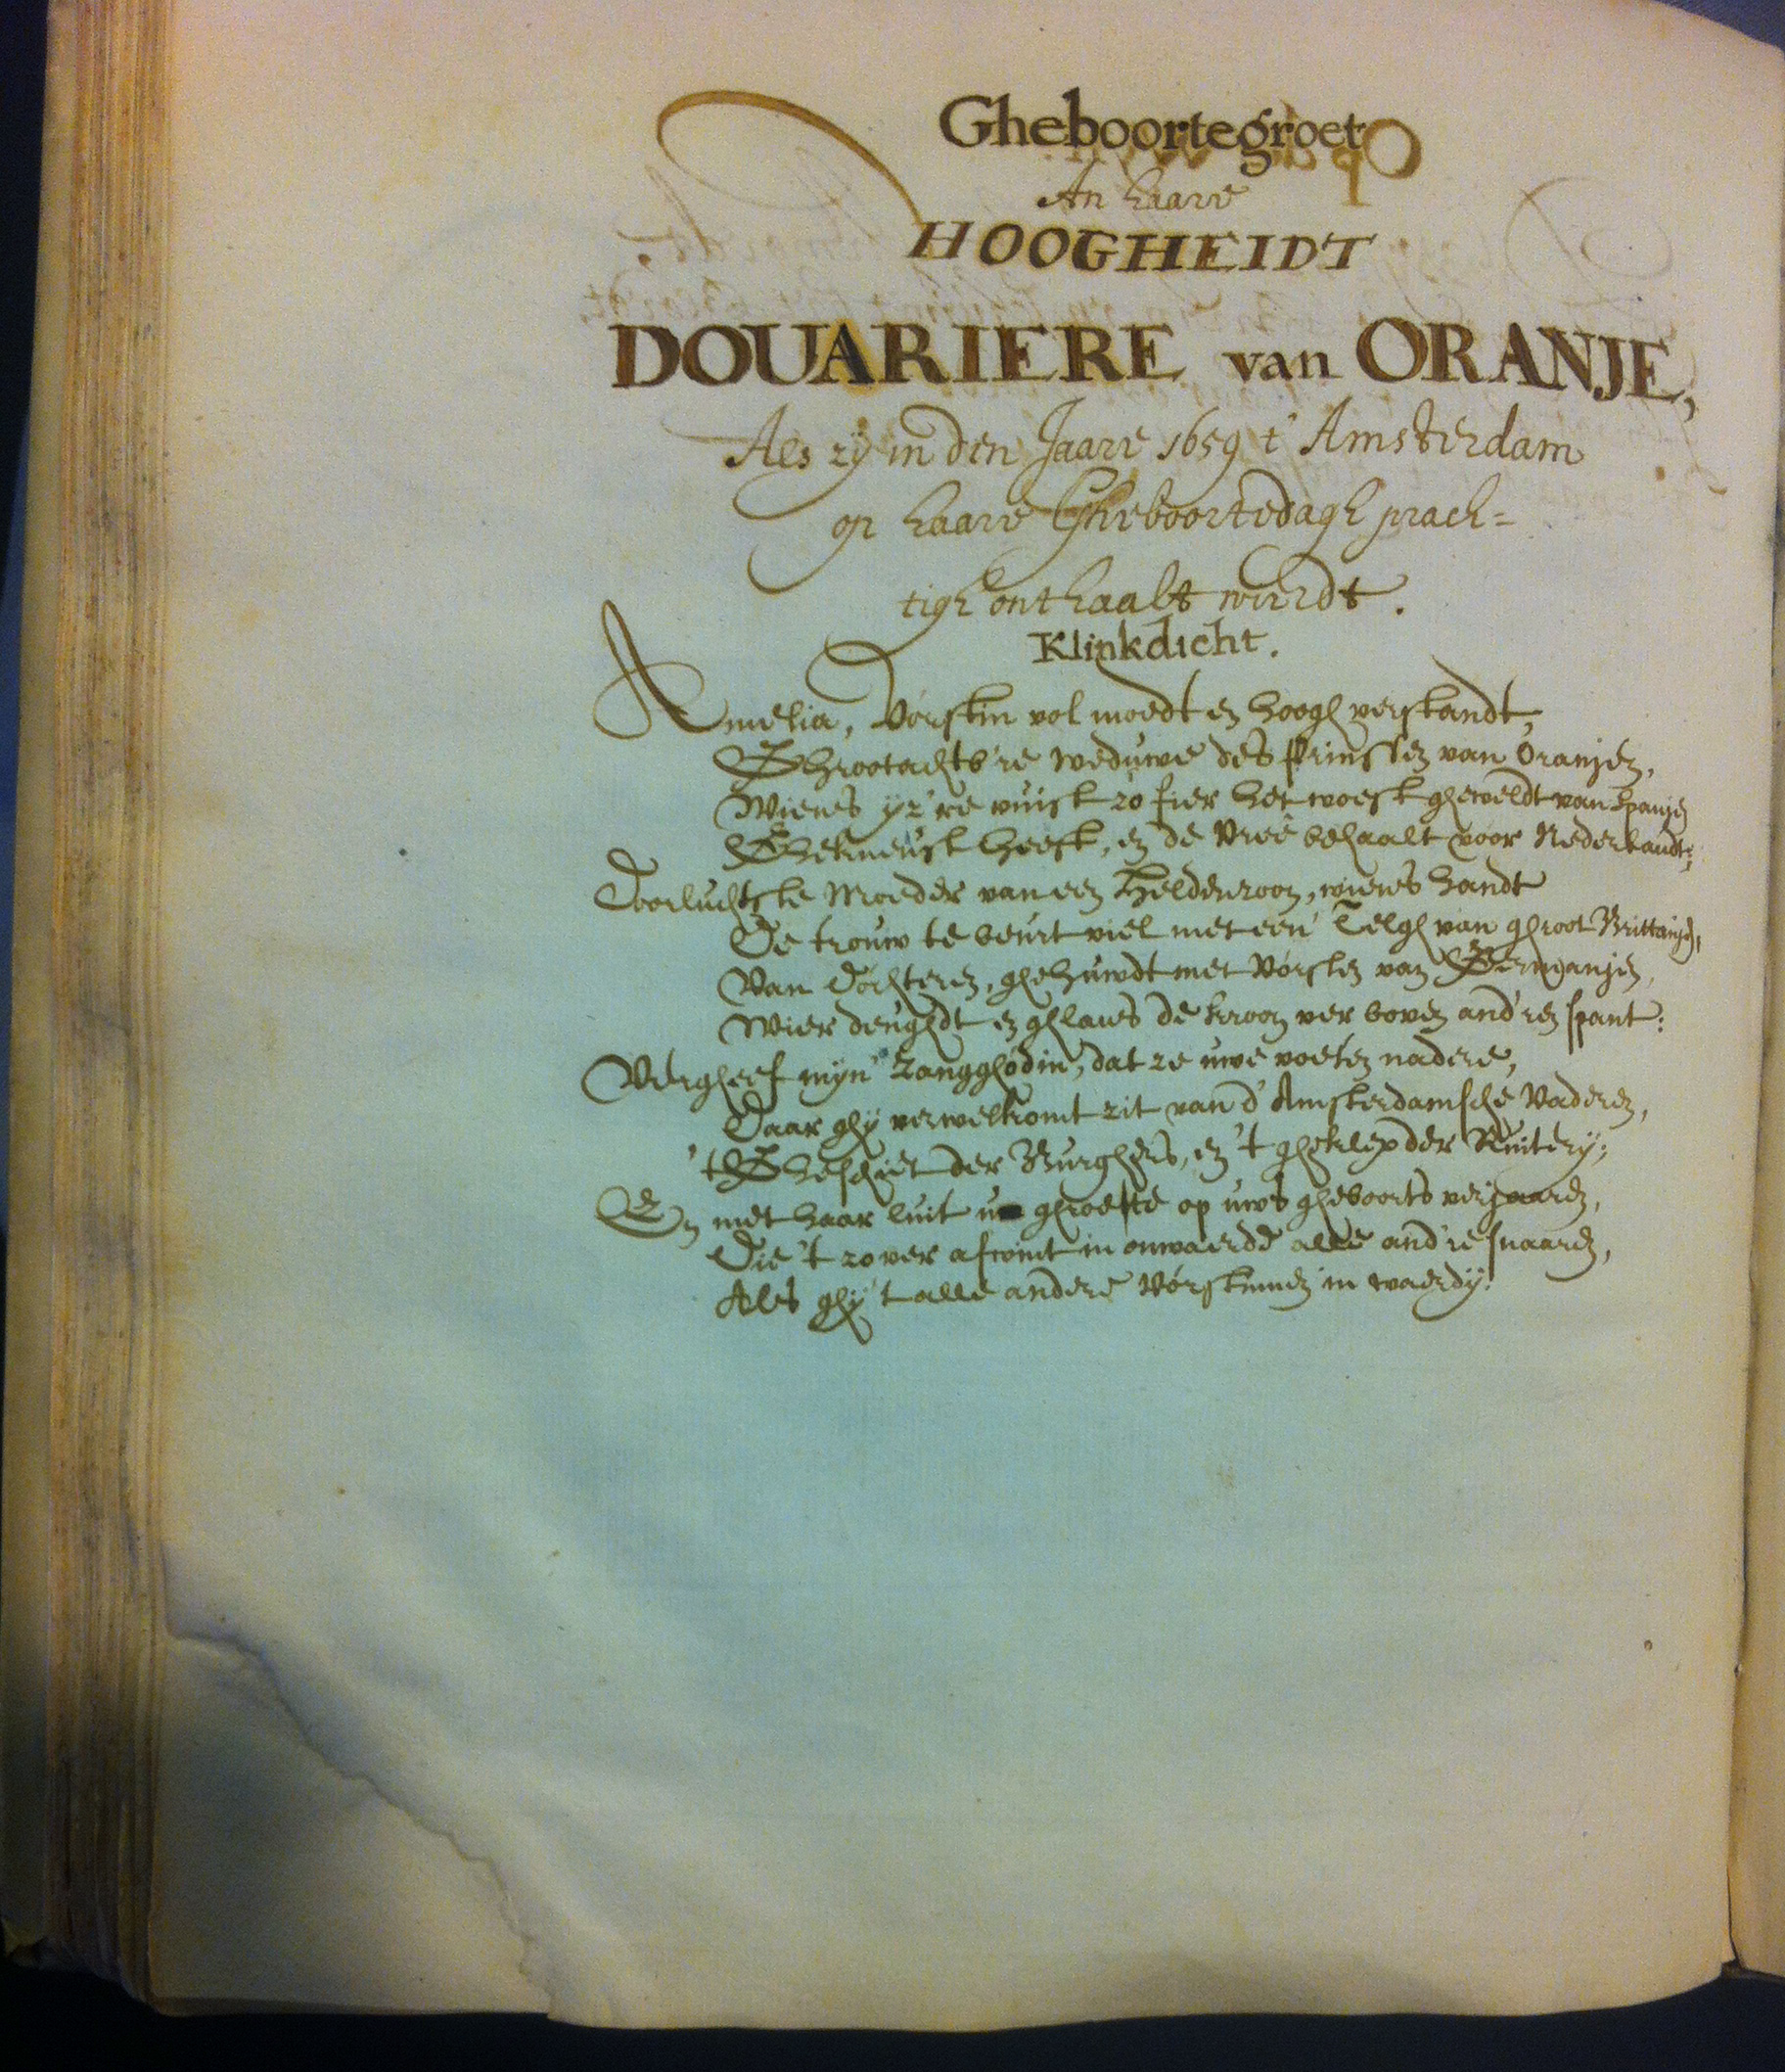 Gheboortegroet
An haare
HOOGHEIDT
DOUARIERE van ORANJE,
Als zy in den Jaare 1659 t' Amsterdam
op haare Gheboortedagh prach=
tigh onthaalt wierdt.
Klinkdicht.
Amelia, Vórstin vol moedt en hoogh verstandt,
Ghrootachtb're weduwe des Prinsten van Oranjen,
Wiens yz're vuist zo fier het woest gheweldt van Spanjen
Ghekneust heeft, en de Vreê behaalt voor Nederlandt:
Doorluchtste Moeder van een Heldenzoon, wiens handt
De trouw te beurt viel met een' Telgh van ghroot Brittanjen,
Van Dóchteren, ghehuwdt met Vórsten van Germanjen,
Wier deughdt en ghlans de kroon ver boven and'ren spant:
Vergheef myn' Zangghodin, dat ze uwe voeten nadere,
Daar ghy verwelkomt zit van d' Amsterdamsche Vaderen,
't Gheschiet der Burghers, en 't gheklep der Ruitery;
En met haar luit u ghroette op uws gheboorts verjaaren,
Die 't zo ver afwint in onwaerde alle and're snaaren,
Als ghy 't alle andere Vórstinnen in waerdy.